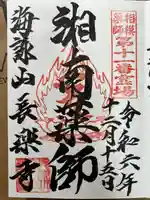 相模薬師
第十一番霊場
令和六年
十一月十五日
湘南薬師
海潮山長楽寺